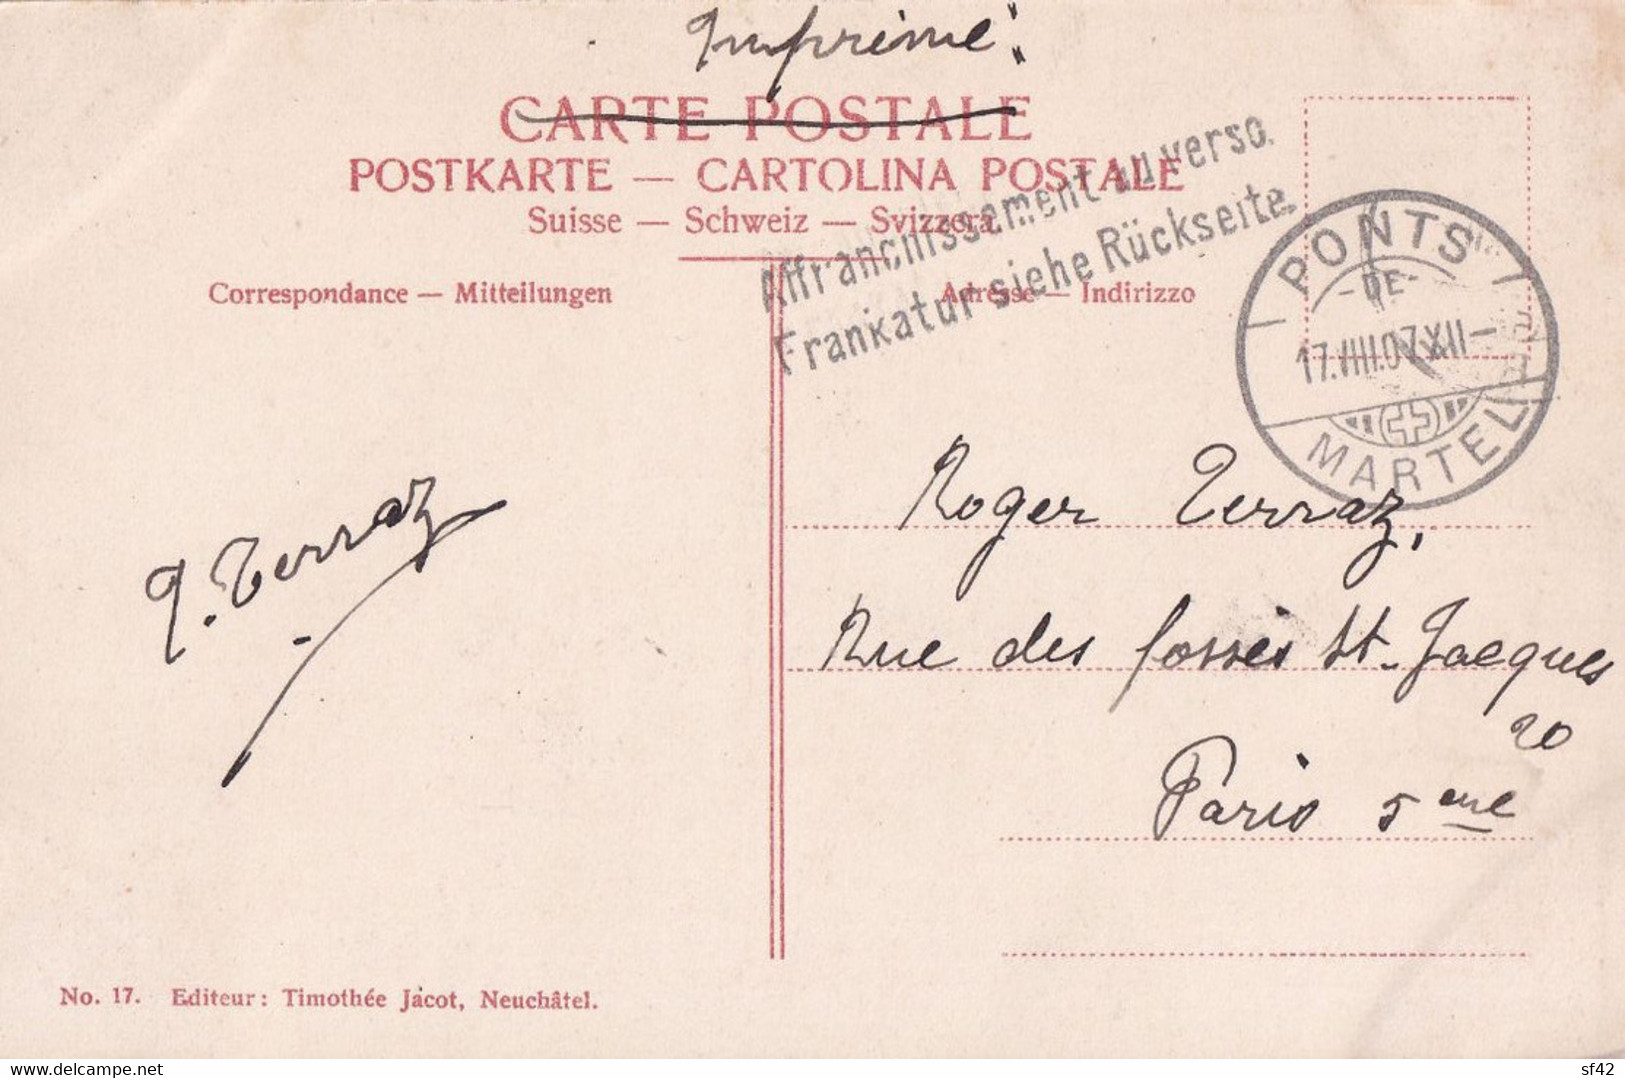 Imprimé
CARTE POSTALE
POSTKARTE — CARTOLINA POSTALE
Suisse — Schweiz — Svizzera
Affranchissement au verso.
Frankatur siehe Rückseite.
Correspondance — Mitteilungen
Adresse — Indirizzo
PONTS
-DE-
17.VIII.07.XII-
MARTEL
Roger Terraz,
Rue des fossés St-Jacques
20
Paris 5eme
J. Terraz
No. 17. Editeur: Timothée Jacot, Neuchâtel.
delcampe.net
sf42